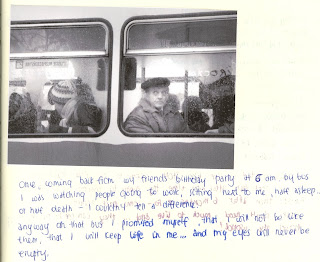 Once, coming back from my friends birthday party at 6 am. by bus
I was watching people going to work, sitting next to me, half asleep..
or half death - I couldn't tell a difference.
anyway on that bus I promised myself, that, I will not be like
them, that I will keep life in me... and my eyes will never be
empty.